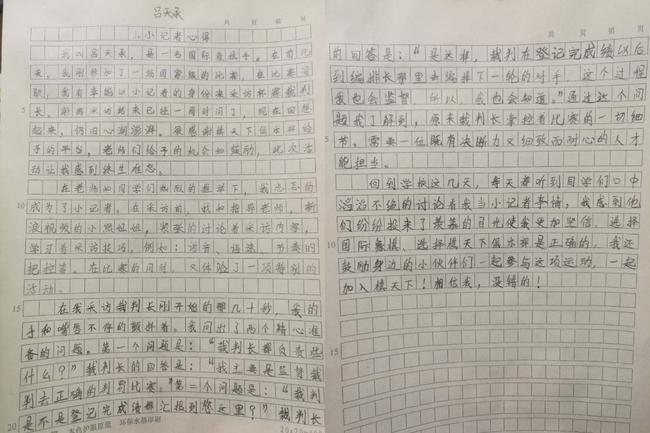 吕天承
共 页 第 页
小记者心得
我叫吕天承,是一名国际象棋手。在前几
天,我刚参加了一场国家级的比赛,在比赛间
歇,我有幸地以小记者的身份来采访杯赛裁判
长。距离采访结束已经一周时间了,现在回想
起来,仍旧心潮澎湃。很感谢棋天下俱乐部给
予的平台,老师们给予的机会和鼓励,此次活
动让我感到终生难忘。
在老师和同学们热烈的推举下,我忐忑的
成为了小记者。在采访前,我和指导老师,新
浪视频的小熊姐姐,紧张的讨论着采访内容,
学习着采访技巧,例如:语言、语速、节奏的
把控等。在比赛的同时,又体验了一项特别的
活动。
在我采访裁判长刚开始的那几十秒,我的
手和嘴唇不停的颤抖着。我问出了两个精心准
备的问题。第一个问题是:“裁判长都负责些
什么?”裁判长的回答是:“我主要是监督裁
判去正确的判罚比赛。”第二个问题是:“裁判
是不是登记完成绩都汇报到您这里?”裁判长
5
10
15
20
本色护眼原纸 环保水晶印刷
共 页 第 页
的回答是:“是这样,裁判在登记完成绩以后
到编排长那里去编排下一轮的对手,这个过程
我也会监督,所以,我也会知道。”通过这个问
题我了解到,原来裁判长掌控着比赛的一切细
节。需要一位既有决断力又细致而耐心的人才
能担当。
回到学校这几天,每天都听到同学们口中
滔滔不绝的讨论着我当小记者事情,我感到他
们纷纷投来了羡慕的目光使我更加坚信,选择
国际象棋,选择棋天下俱乐部是正确的,我还
鼓励身边的小伙伴们一起参与这项运动,一起
加入棋天下!相信我,没错的!
5
10
15